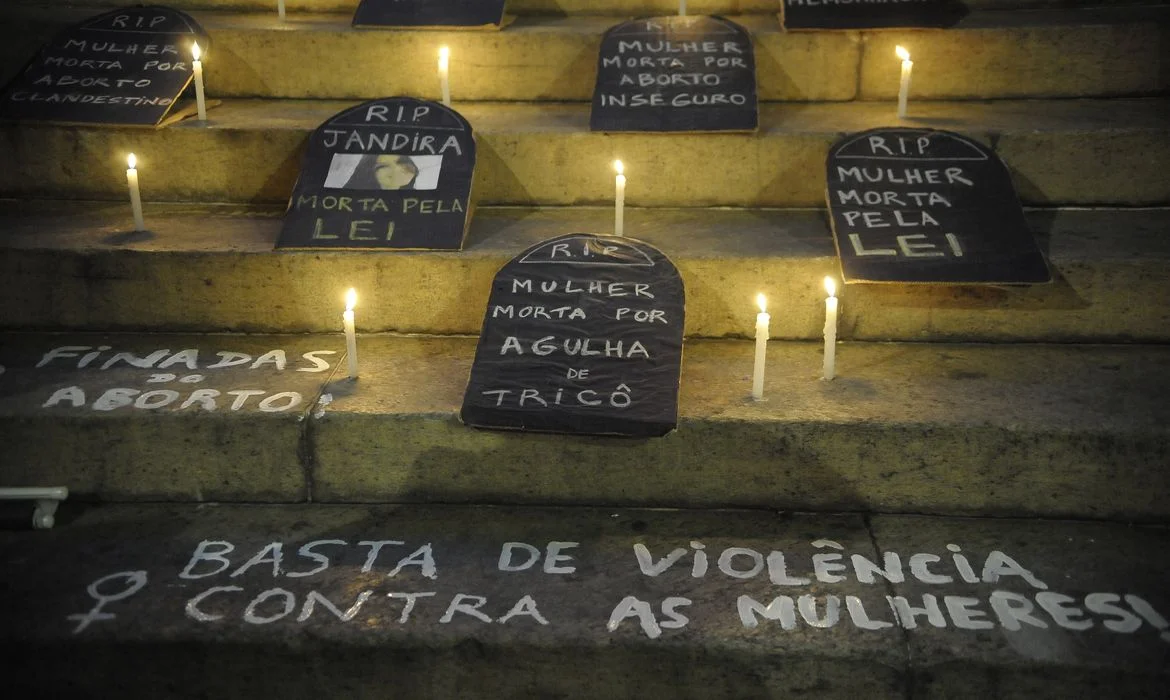 R.I.P
MULHER
MORTA POR
ABORTO
CLANDESTINO
R.I.P
MULHER
MORTA POR
ABORTO
INSEGURO
R.I.P
JANDIRA
MORTA PELA
LEI
R.I.P
MULHER
MORTA
PELA
LEI
R.I.P
MULHER
MORTA POR
AGULHA
DE
TRICÔ
FINADAS
DO
ABORTO!
BASTA DE VIOLÊNCIA
CONTRA AS MULHERES!